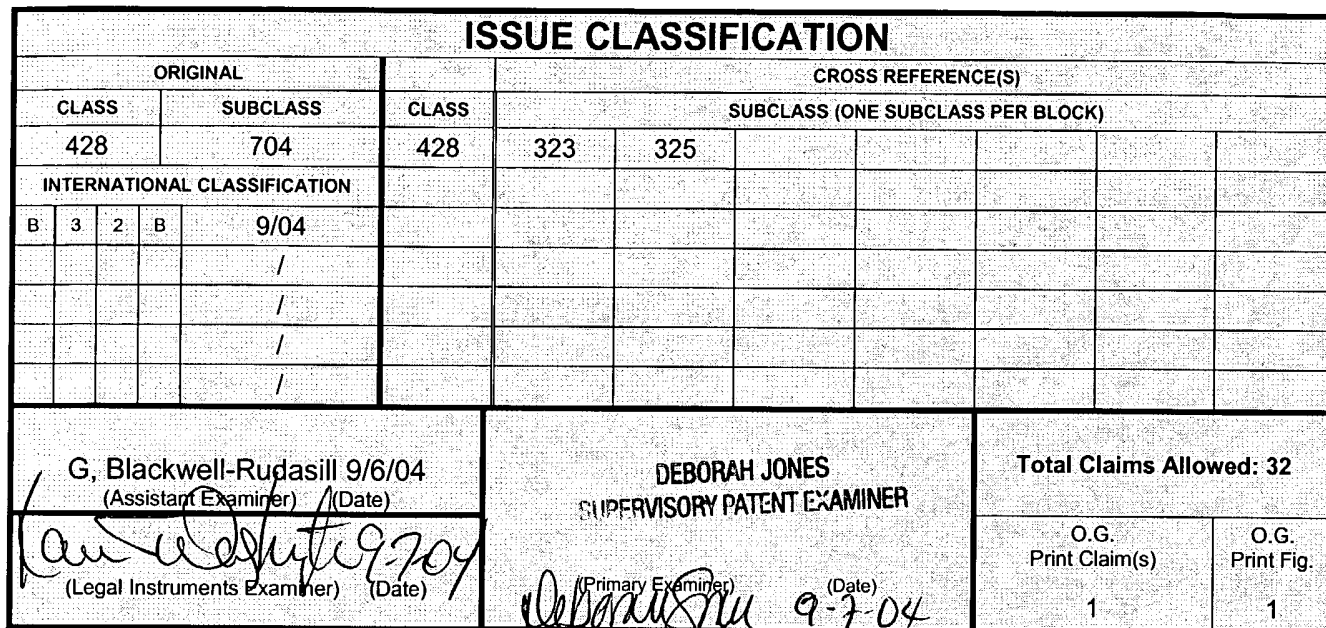 ISSUE CLASSIFICATION
ORIGINAL CROSS REFERENCE(S)
CLASS SUBCLASS CLASS SUBCLASS (ONE SUBCLASS PER BLOCK)
428 704 428 323 325
INTERNATIONAL CLASSIFICATION
B 3 2 B 9/04
/
/
/
/
G, Blackwell-Rudasill 9/6/04
(Assistant Examiner) (Date)
9-7-04
(Legal Instruments Examiner) (Date)
DEBORAH JONES
SUPERVISORY PATENT EXAMINER
(Primary Examiner) (Date)
9-7-04
Total Claims Allowed: 32
O.G.
Print Claim(s)
1
O.G.
Print Fig.
1